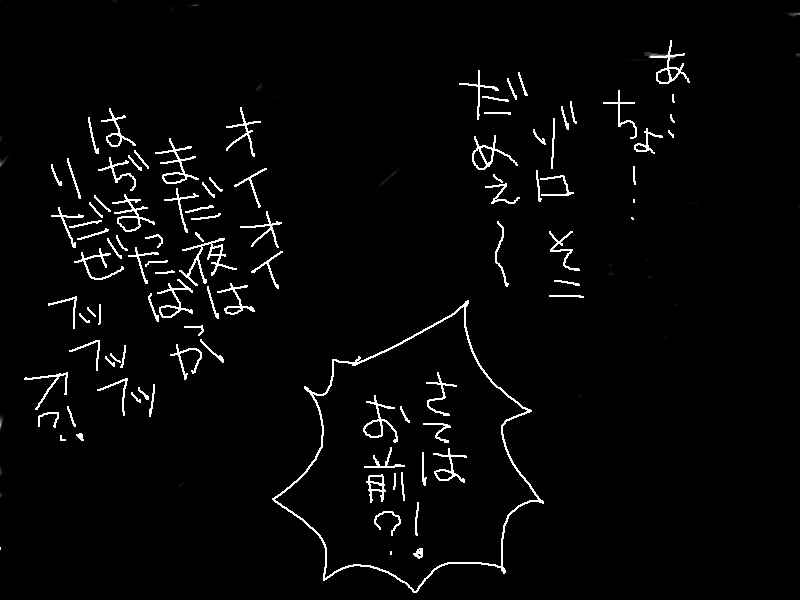 あ…
ちょ…!
ゾロそこ
だめぇ〜
オイオイ
まだ夜は
はぢまったばっか
りだぜ
フッフッフッ
さては!
お前?